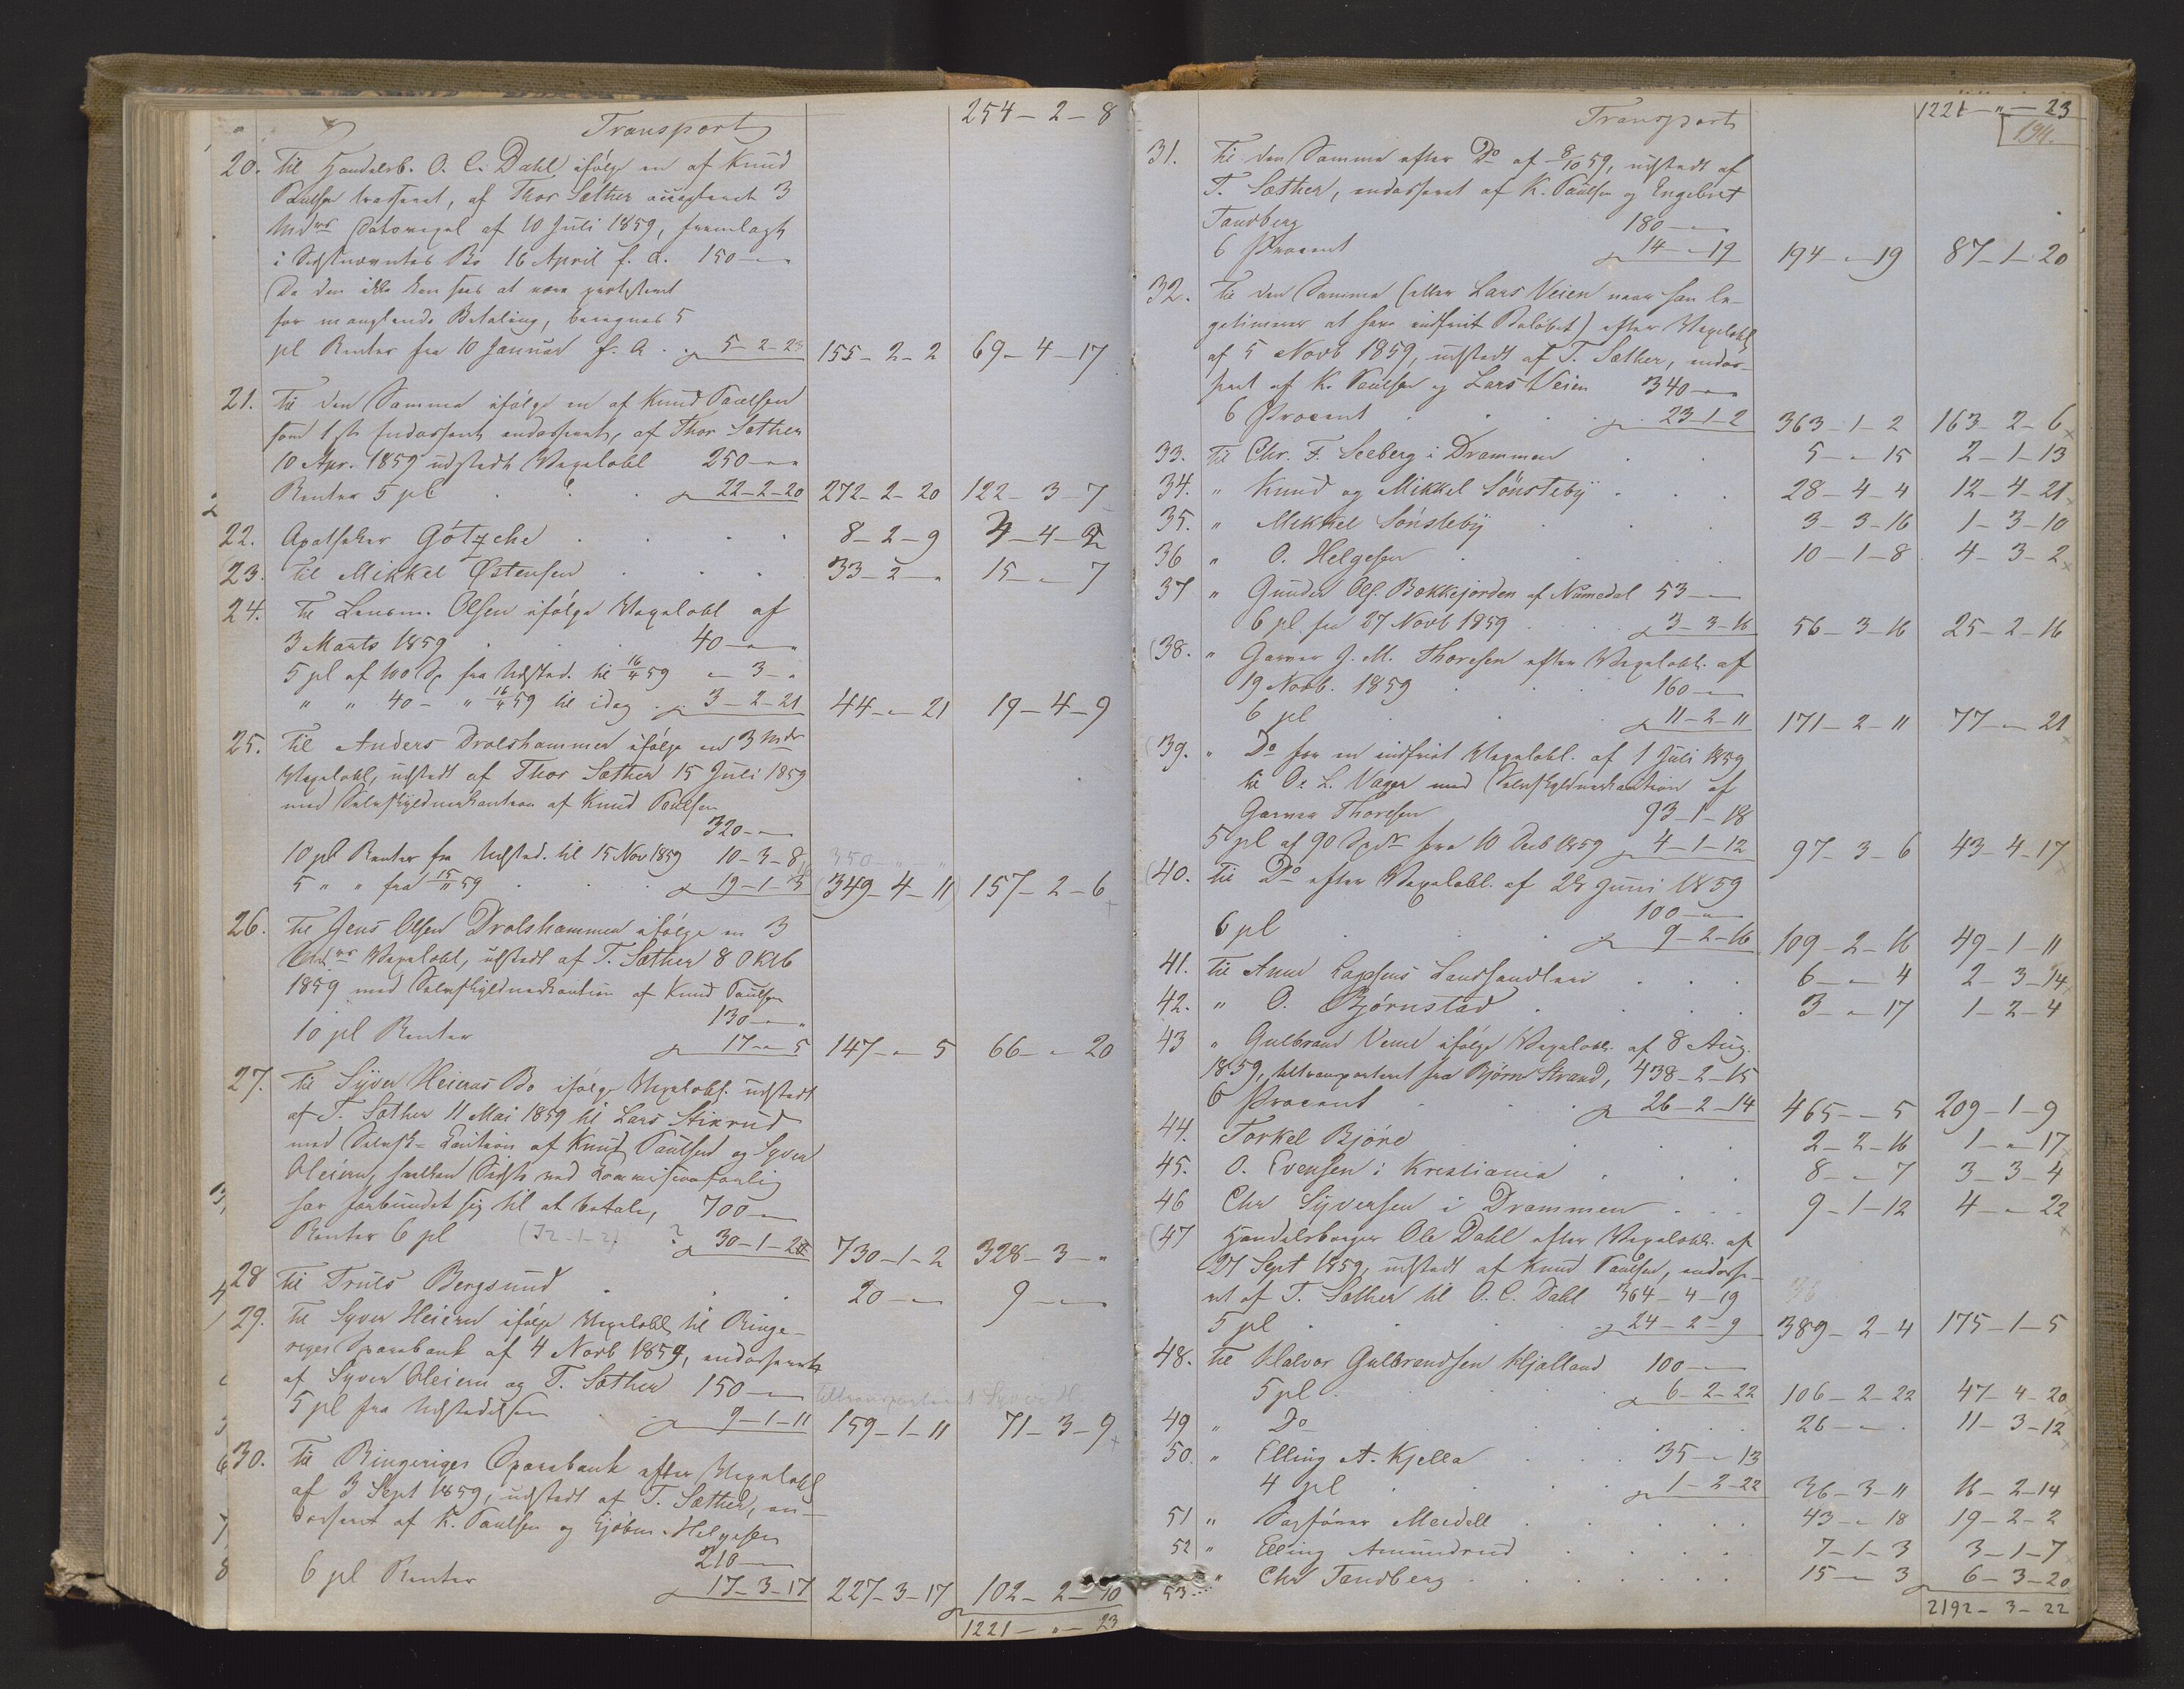 Transport 254 - 2 - 8
20. Til Handelsb. O. C. Dahl ifølge en af Knud
Paulsen trasseret, af Thor Sæther accepteret 3
Mdrs Datovexel af 10 Juli 1859, fremlagt
i Sidstnævntes Bo 16 April f. A. 150 - " - "
Da den ikke kan sees at være protesteret
for manglende Betaling, beregnes 5
pC Renter fra 10 Januar f. A. 5 - 2 - 2 155 - 2 - 2 69 - 4 - 17
21. Til den Samme ifølge en af Knud Paulsen
som 1ste Endossent endosseret, af Thor Sæther
10 Apr. 1859 udstedt Vexelobl 250 - " - "
Renter 5 pC 22 - 2 - 20 272 - 2 - 20 122 - 3 - 7
22. Apotheker Götzche 8 - 2 - 9
23. Til Mikkel Østensen 33 - 2 - " 15 - " - 7
24. Til Lensm. Olsen ifølge Vexelobl af
3 Marts 1859 40 - " - "
5 pC af 100 Sp fra Udsted. til 59 " - 3 - "
" " 40 - " 59 til idag 3 - 2 - 21 44 - " - 21 19 - 4 - 9
25. Til Anders Drolshammer ifølge en 3 Mdrs
Vexelobl, udstedt af Thor Sæther 15 Juli 1859
med Selvskyldnerkaution af Knud Paulsen
320 - " - "
10 pC Renter fra Udsted. til 15 Nov 1859 10 - 3 - 8 350 - " - "
5 " " fra 15/11 59 19 - 1 - 3 (349 - 4 - 11) 157 - 2 - 6
26. Til Jens Olsen Drolshammer ifølge en 3
Mdrs Vexelobl, udstedt af T. Sæther 8 Oktb
1859 med Selvskyldnerkaution af Knud Paulsen
130 - " - "
10 pC Renter 17 - " - 5 147 - " - 5 66 - " - 20
27. Til Syver Heierns Bo ifølge Vexelobl. udstedt
af T. Sæther 11 Mai 1859 til Lars Stixrud
med Selvsk- Kaution af Knud Paulsen og Syver
Heiern, hvilken Sidste ved Kommissionsforlig
har forbundet sig til at betale, 700 - " - "
Renter 6 pC ? 30 - 1 - 2 730 - 1 - 2 328 - 3 - "
28 Til Truls Bergsund 20 - " - " 9 - " - "
29. Til Syver Heiern ifølge Vexelobl til Ringe-
riges Sparebank af 4 Novb 1859, endosseret
af Syver Heiern og T. Sæther 150 - " - "
5 pC fra Udstedelsen 9 - 1 - 11 159 - 1 - 11 71 - 3 - 9
30. Til Ringeriges Sparebank efter Vexelobl
af 3 Sept 1859, udstedt af T. Sæther, en-
dosseret af K. Paulsen og Helgesen
210 - " - "
6 pC Renter 17 - 3 - 17 227 - 3 - 17 102 - 2 - 10
1221 - " - 23
Transport 1221 - " - 23
194.
31. Til den Samme efter Do af 8/10 59, udstedt af
T. Sæther, endosseret af K. Paulsen og Engebret
Tandberg 180 - " - "
6 Procent 14 - " - 19 194 - " - 19 87 - 1 - 20
32. Til den Samme (eller Lars Veien naar han le-
gitimerer at have indfriet Beløbet) efter Vexelobl
af 5 Novb 1859, udstedt af T. Sæther, endos-
seret af K. Paulsen og Lars Veien 340 - " - "
6 Procent 23 - 1 - 2 363 - 1 - 2 163 - 2 - 6
33. Til Chr. F. Seeberg i Drammen 5 - " - 15 2 - 1 - 13
34. " Knud og Mikkel Sönsteby 28 - 4 - 4 12 - 4 - 21
35. " Mikkel Sönsteby 3 - 3 - 16 1 - 3 - 10
36 " O. Helgesen 10 - 1 - 8 4 - 3 - 2
37 " Gunder Ols. Bekkejorden af Numedal 53 - " - "
6 pC fra 27 Novb 1859 3 - 3 - 16 56 - 3 - 16 25 - 2 - 16
(38. " Garver G. M. Thoresen efter Vexelobl. af
19 Novb. 1859 160 - " - "
6 pC 11 - 2 - 11 171 - 2 - 11 77 - " - 21
(39. " Do for en indfriet Vexelobl. af 1 Juli 1859
til O. L. Vager med Selvskyldnerkaution af
Garver Thoresen 93 - 1 - 18
5 pC af 90 Spdr fra 10 Decb 1859 4 - 1 - 12 97 - 3 - 6 43 - 4 - 17
(40. Til Do efter Vexelobl. af 24 Juni 1859
100 - " - "
6 pC 9 - 2 - 16 109 - 2 - 16 49 - 1 - 11
41. Til Anne Landhandleri 6 - " - 4 2 - 3 - 14
42. " O. Björnstad 3 - " - 17 1 - 2 - 4
43 " Gulbrand Veme ifølge Vexelobl. af 8 Aug.
1859, tiltransporteret fra Bjørn Strand, 438 - 2 - 15
6 Procent 26 - 2 - 14 465 - " - 5 209 - 1 - 9
44. Torkel Björe 2 - 2 - 16 1 - " - 17
45. O. Evensen i Kristiania 8 - " - 7 3 - 3 - 4
46 Chr Syversen i Drammen 9 - 1 - 12 4 - " - 22
(47 Handelsborger Ole Dahl efter Vexelobl. af
27 Sept 1859, udstedt af Knud Paulsen, endosse-
ret af T. Sæther til O. C. Dahl 364 - 4 - 19
5 pC 24 - 2 - 9 389 - 2 - 4 175 - 1 - 5
48. Til Halvor Gulbrandsen Hjalland 100 - " - "
5 pC 6 - 2 - 22 106 - 2 - 22 47 - 4 - 20
49 " Do 26 - " - " 11 - 3 - 12
50. " Elling A. Kjella 35 - " - 13
4 pC 1 - 2 - 22 36 - 3 - 11 16 - 2 - 14
51 " Sagfører Meidell 43 - " - 18 19 - 2 - 2
52 " Elling Amundrud 7 - 1 - 3 3 - 1 - 7
53 " Chr Tandberg 15 - " - 3 6 - 3 - 20
2192 - 3 - 22